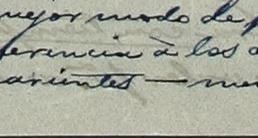 mejor modo de p
erencia à los a
arientes — me